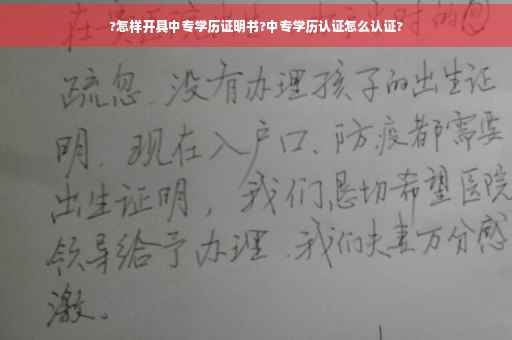 ?怎样开具中专学历证明书?中专学历认证怎么认证?
疏忽、没有办理孩子的出生证
明、现在入户口、防疫都需要
出生证明，我们恳切希望医院
领导给予办理、我们夫妻万分感
激。